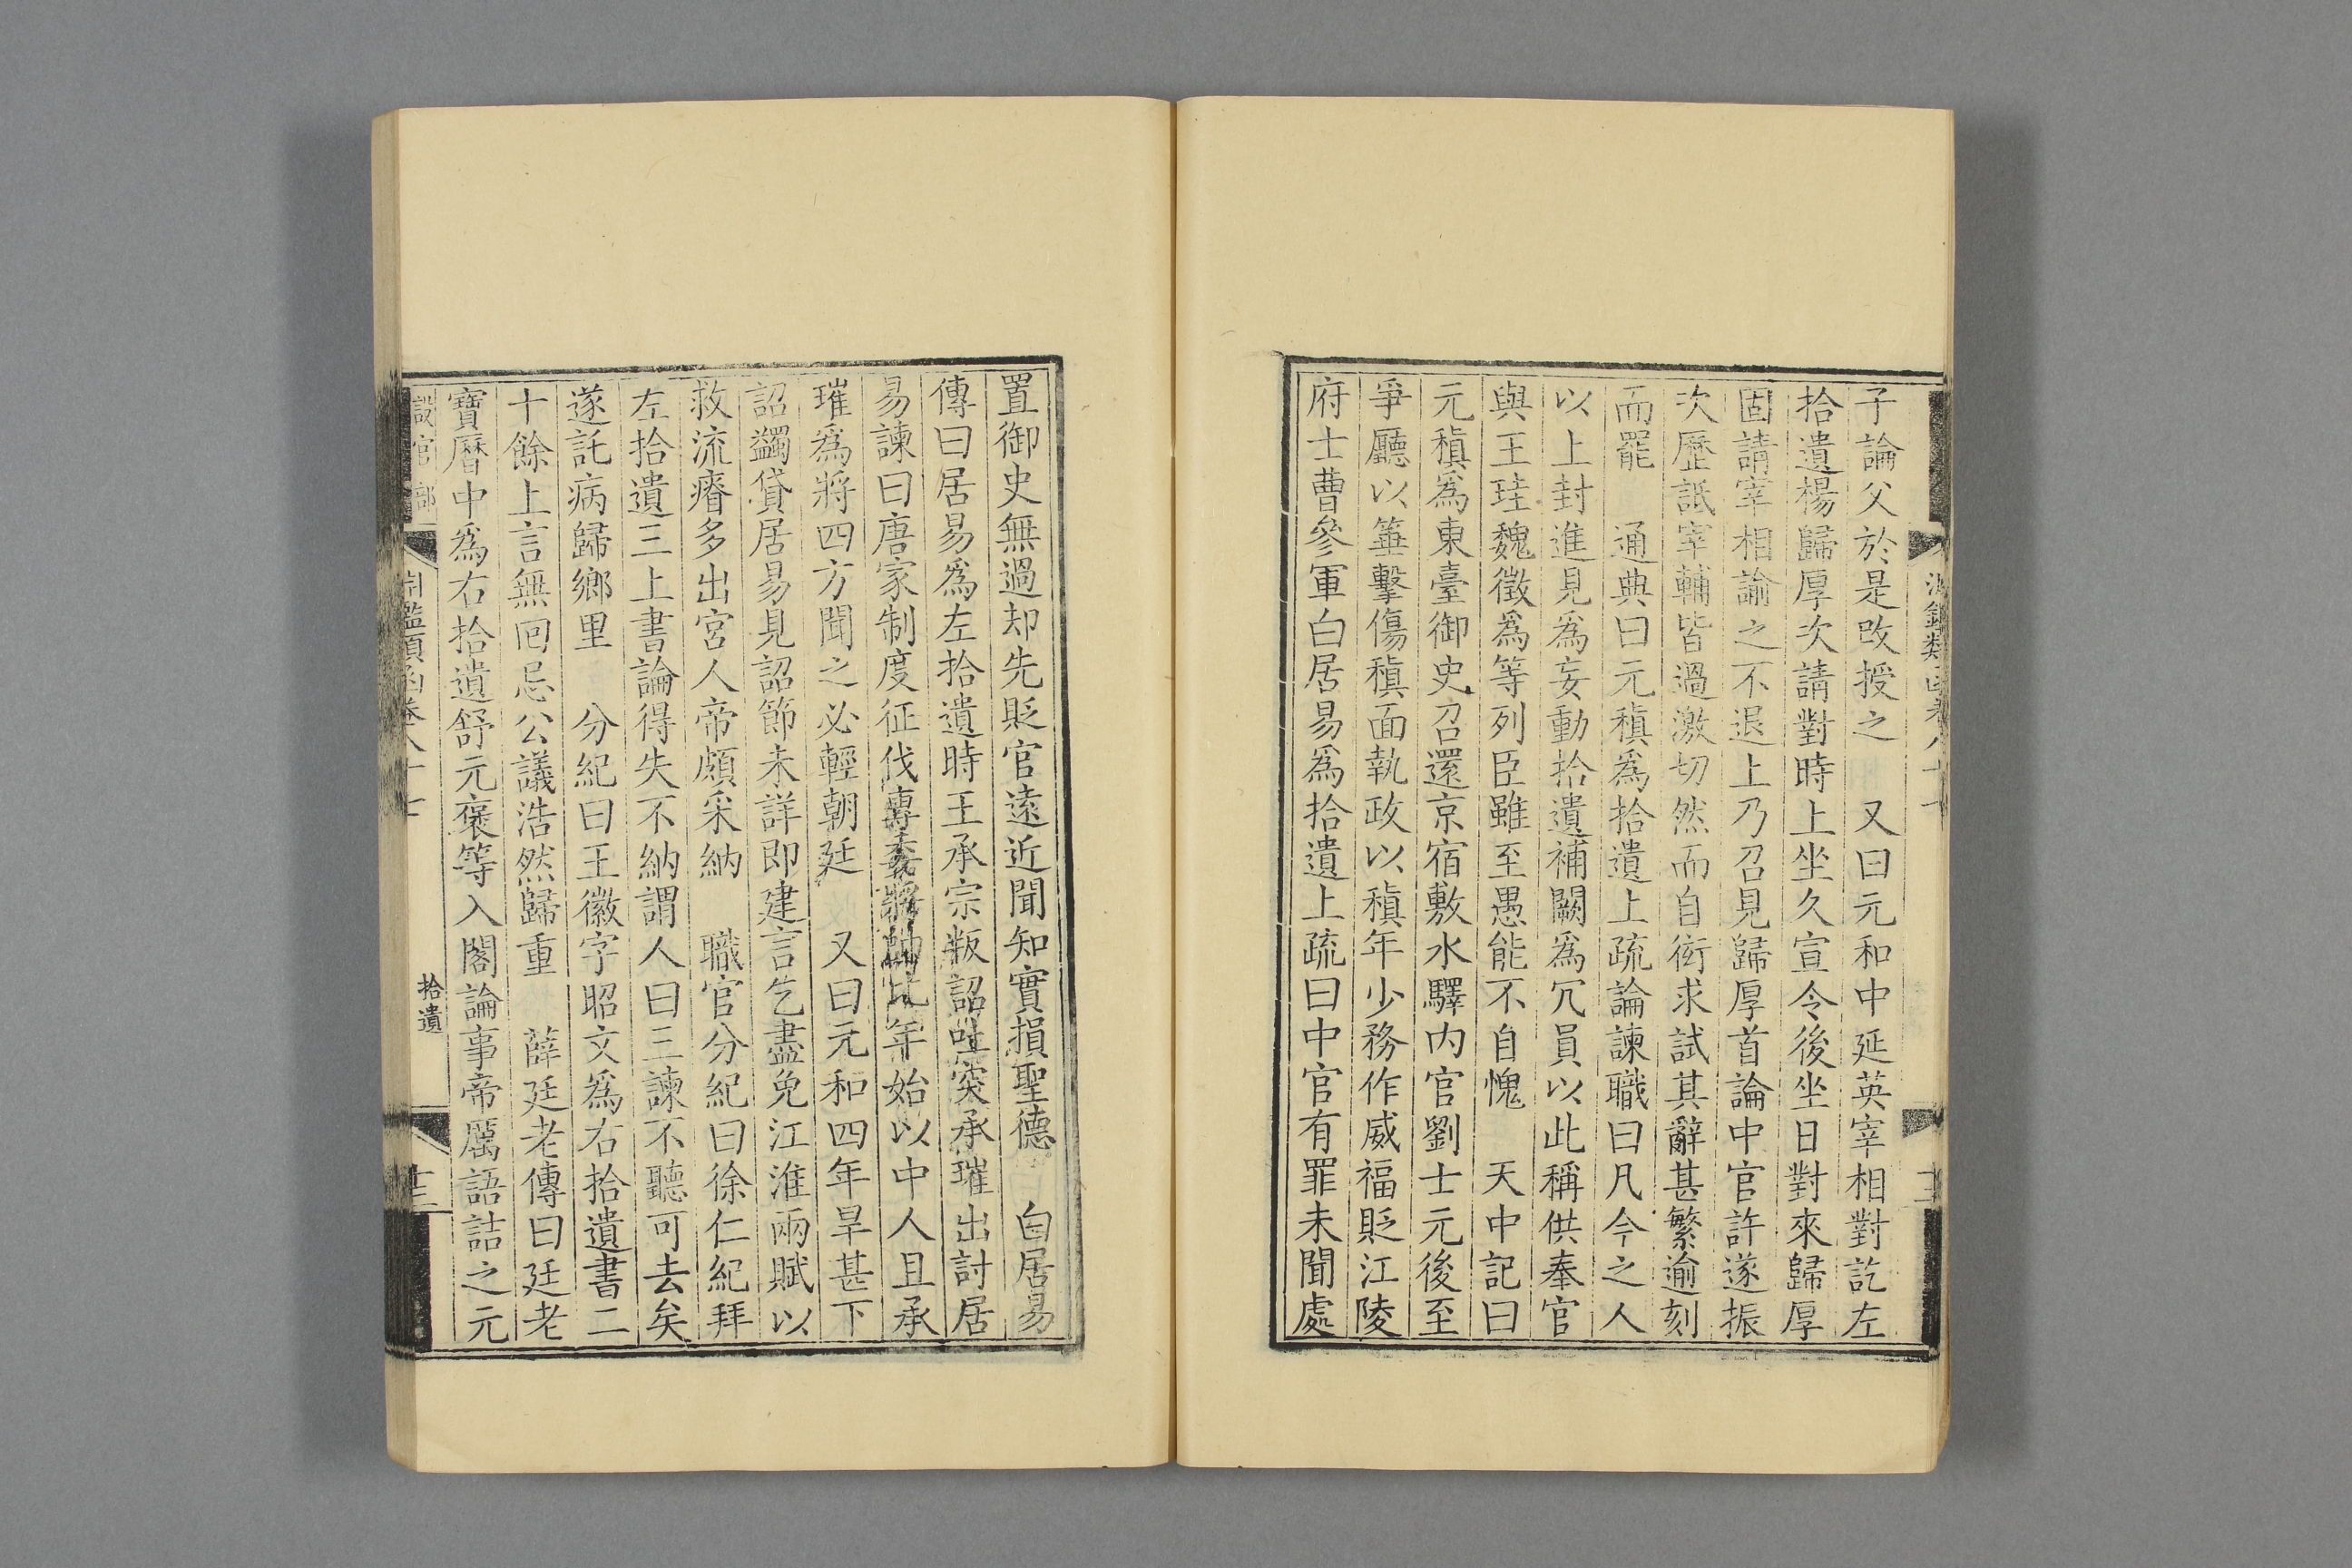 子論父於是改授之　又曰元和中延英宰相對訖左
拾遺楊歸厚次請對時上坐久宣令後坐日對來歸厚
固請宰相諭之不退上乃召見歸厚首論中官許遂振
次歷詆宰輔皆過激切然而自衒求試其辭甚繁逾刻
而罷　通典曰元稹爲拾遺上疏論諫職曰凡今之人
以上封進見爲妄動拾遺補闕爲冗員以此稱供奉官
與王珪魏徵爲等列臣雖至愚能不自愧　天中記曰
元稹爲東臺御史召還京宿敷水驛内官劉士元後至
爭廳以箠擊傷稹面執政以稹年少務作威福貶江陵
府士曹參軍白居易爲拾遺上疏曰中官有罪未聞處
置御史無過却先貶官遠近聞知實損聖德　白居易
傳曰居易爲左拾遺時王承宗叛詔吐突承璀出討居
易諫曰唐家制度征伐專委將帥比年始以中人且承
璀爲將四方聞之必輕朝廷　又曰元和四年旱甚下
詔蠲貸居易見詔節未詳即建言乞盡免江淮兩賦以
救流瘠多出宮人帝頗采納　職官分紀曰徐仁紀拜
左拾遺三上書論得失不納謂人曰三諫不聽可去矣
遂託病歸鄉里　分紀曰王徽字昭文爲右拾遺書二
十餘上言無回忌公議浩然歸重　薛廷老傳曰廷老
寶曆中爲右拾遺舒元褒等入閣論事帝厲語詰之元
設官部
淵鑑類函卷八十七
拾遺
十二